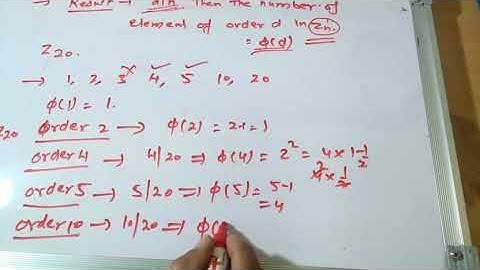 → Result → d|n. Then the number of
element of order d in Zn.
= ϕ(d)
Z20.
→ 1, 2, 3, 4, 5 10, 20
ϕ(1) = 1.
Z20 order 2 → ϕ(2) = 2-1 = 1
order 4 → 4/20 ⇒ ϕ(4) = 2² = 4 × 1-1/2
4 × 1/2
order 5 → 5/20 ⇒ ϕ(5) = 5-1
= 4
order 10 → 10/20 ⇒ ϕ(